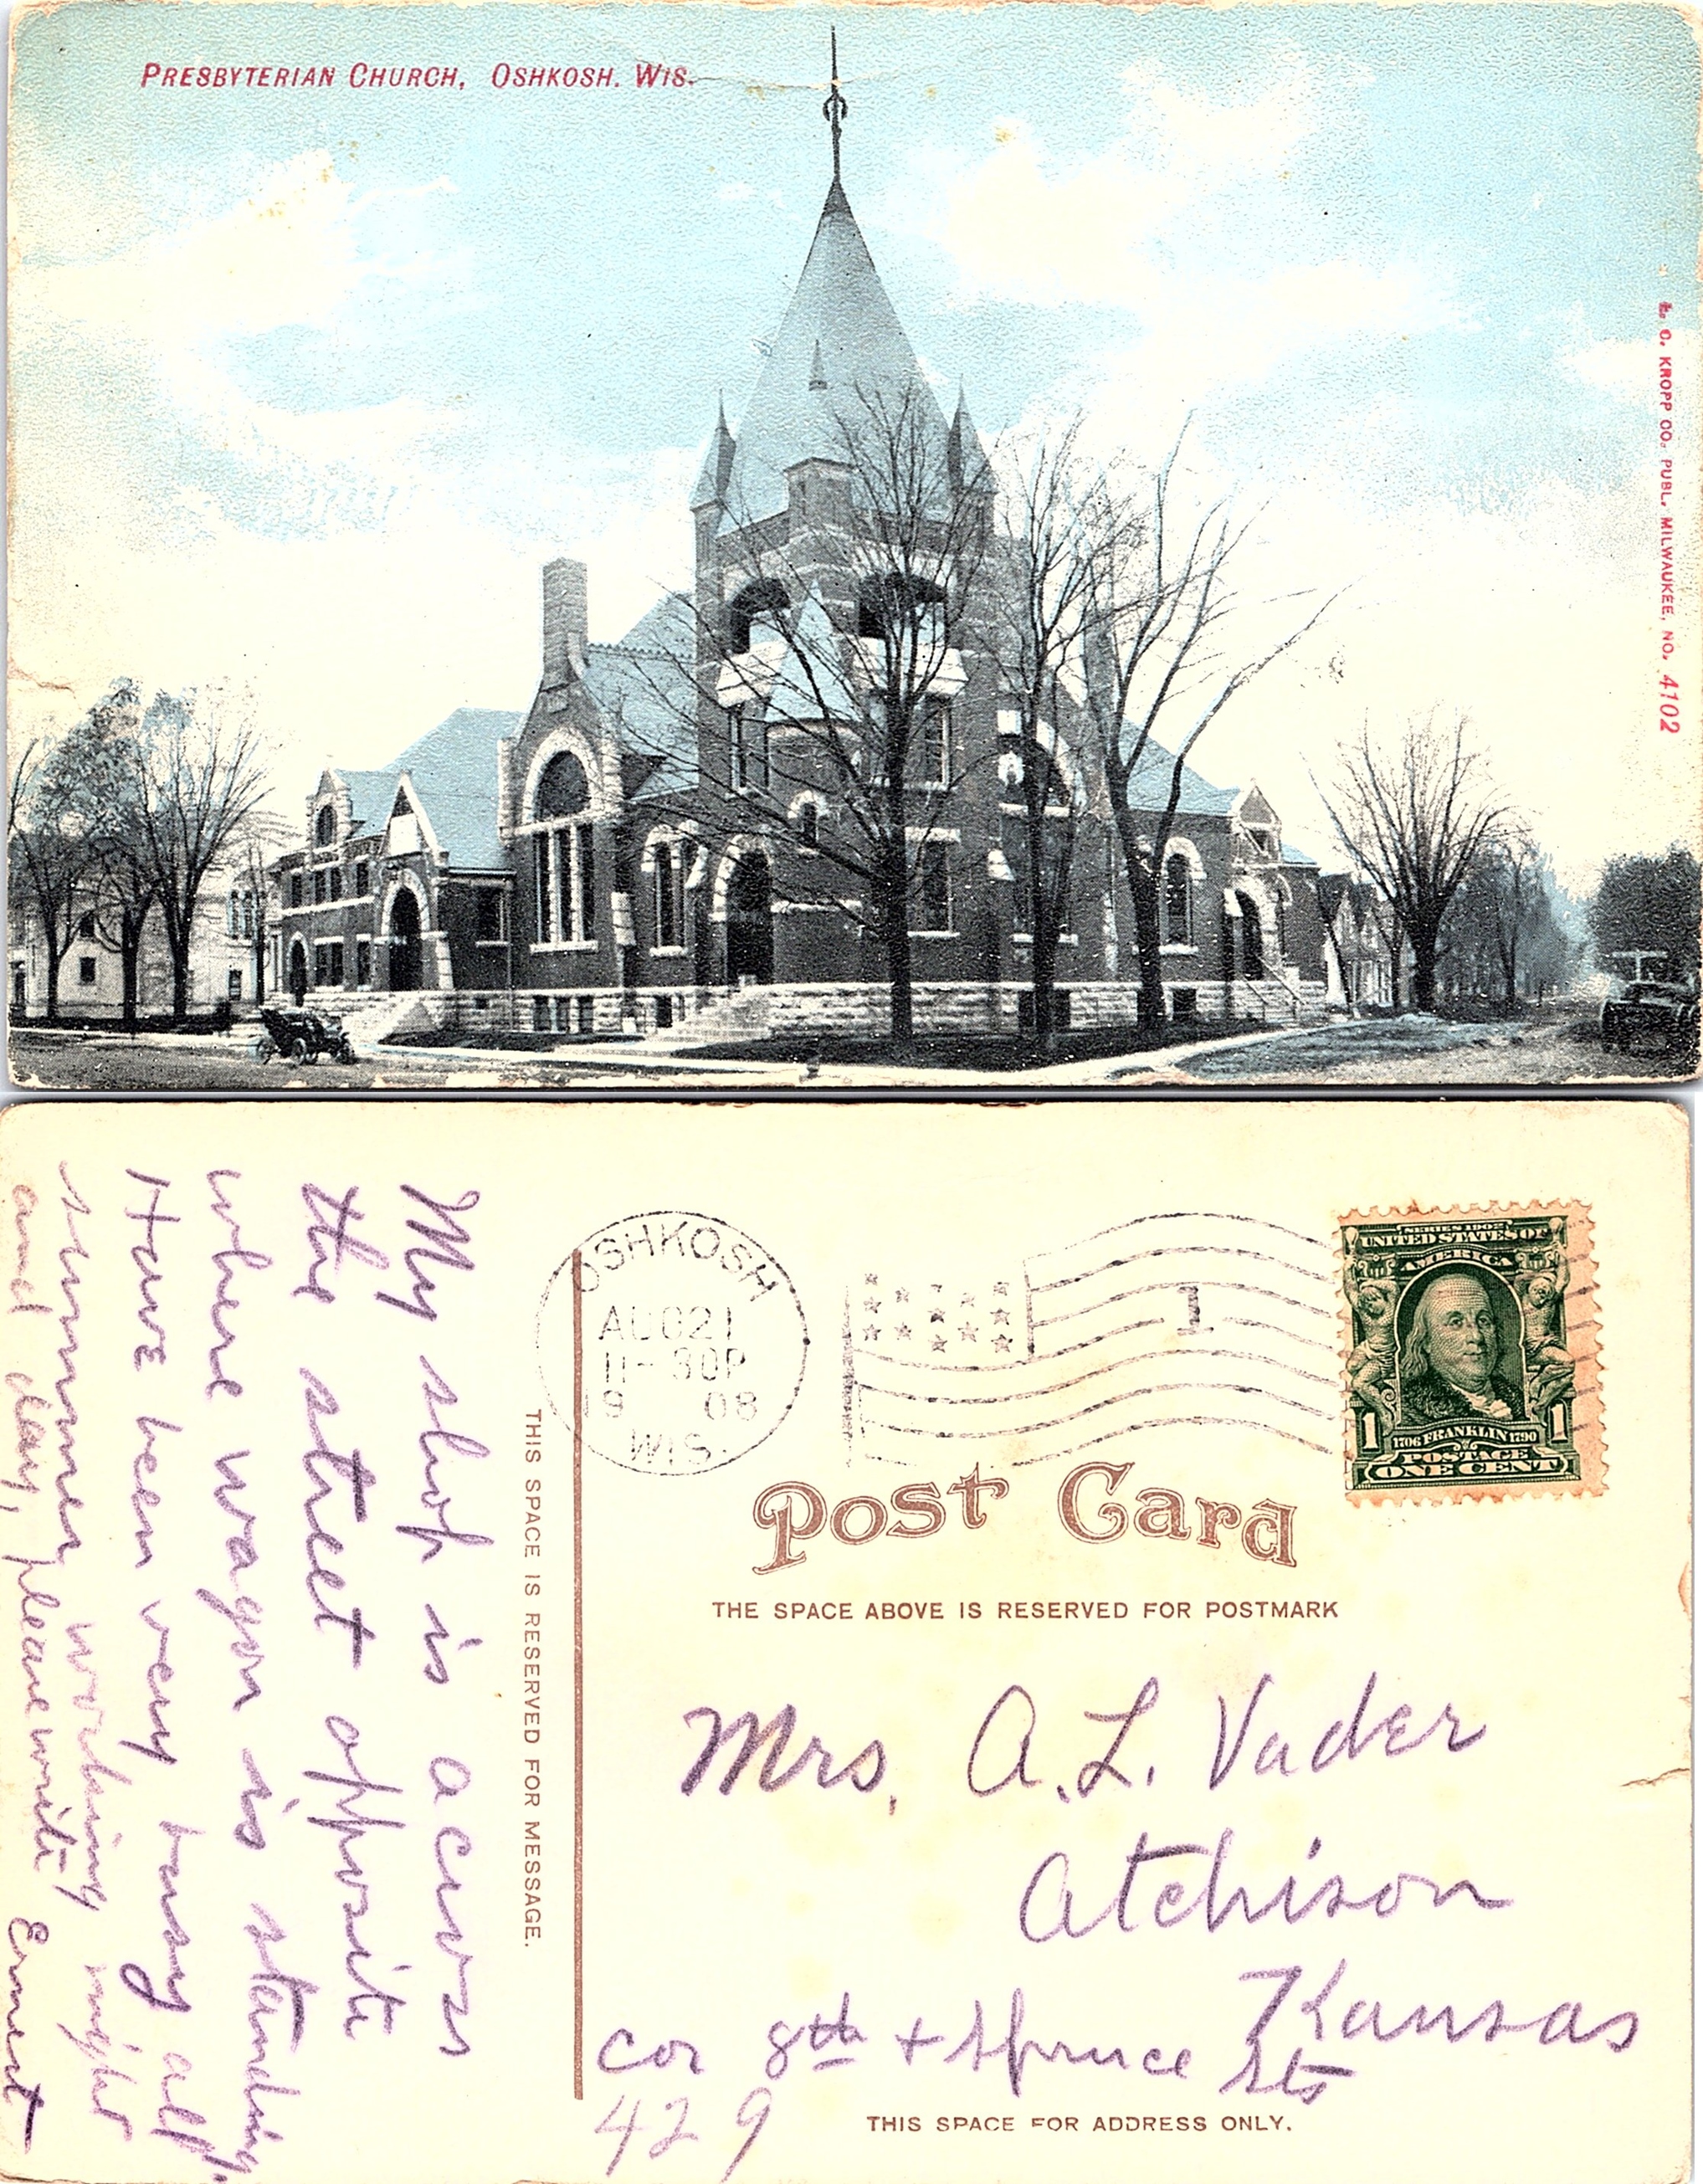 PRESBYTERIAN CHURCH, OSHKOSH. WIS.
E. C. KROPP CO. PUBL. MILWAUKEE, NO. 4102
My shop is across
the street opposite
where wagon is standing
Have been very busy all
summer working night
and day, please write Ernest
THIS SPACE IS RESERVED FOR MESSAGE.
OSHKOSH
AUG 21
11-30P
19 08
WIS.
1
SERIES 1902
UNITED STATES OF
AMERICA
1 1706 FRANKLIN 1790 1
POSTAGE
ONE CENT
Post Card
THE SPACE ABOVE IS RESERVED FOR POSTMARK
Mrs. A. L. Vader
Atchison
Kansas
cor 8th + Spruce Sts
429
THIS SPACE FOR ADDRESS ONLY.